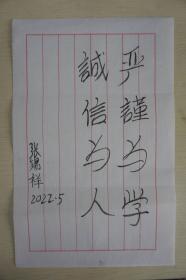 严謹为学
誠信为人
张瑞祥
2022.5